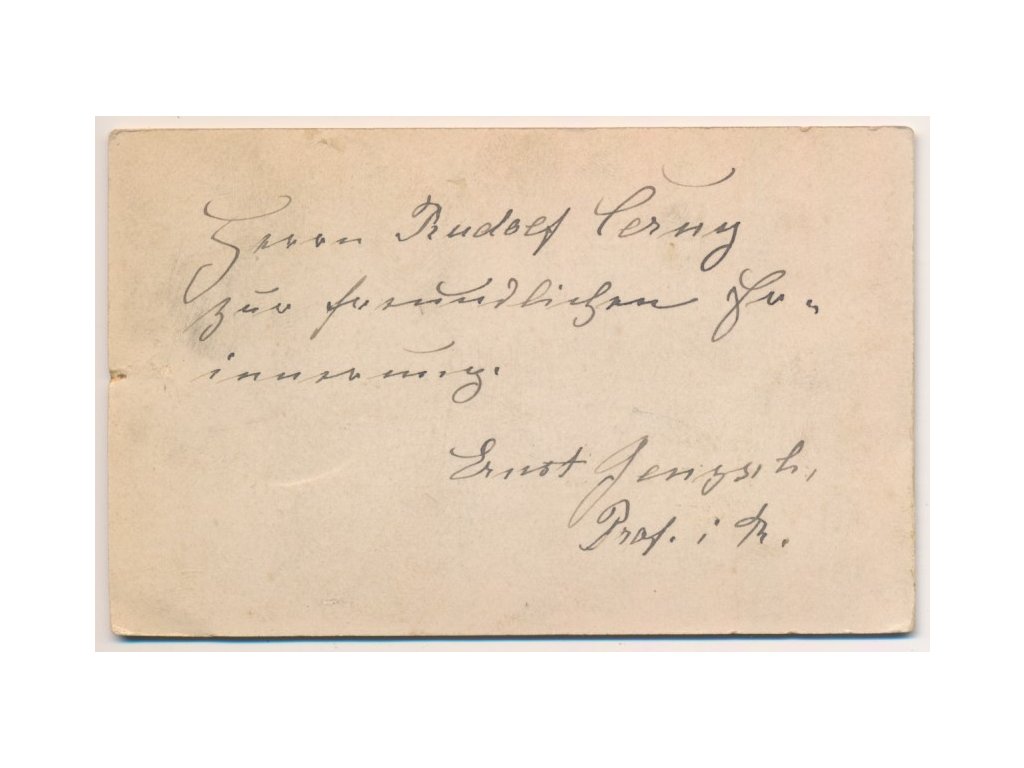 Herrn Rudolf Cerny
zur freundlichen Er-
innerung.
Ernst
Prof. i R.